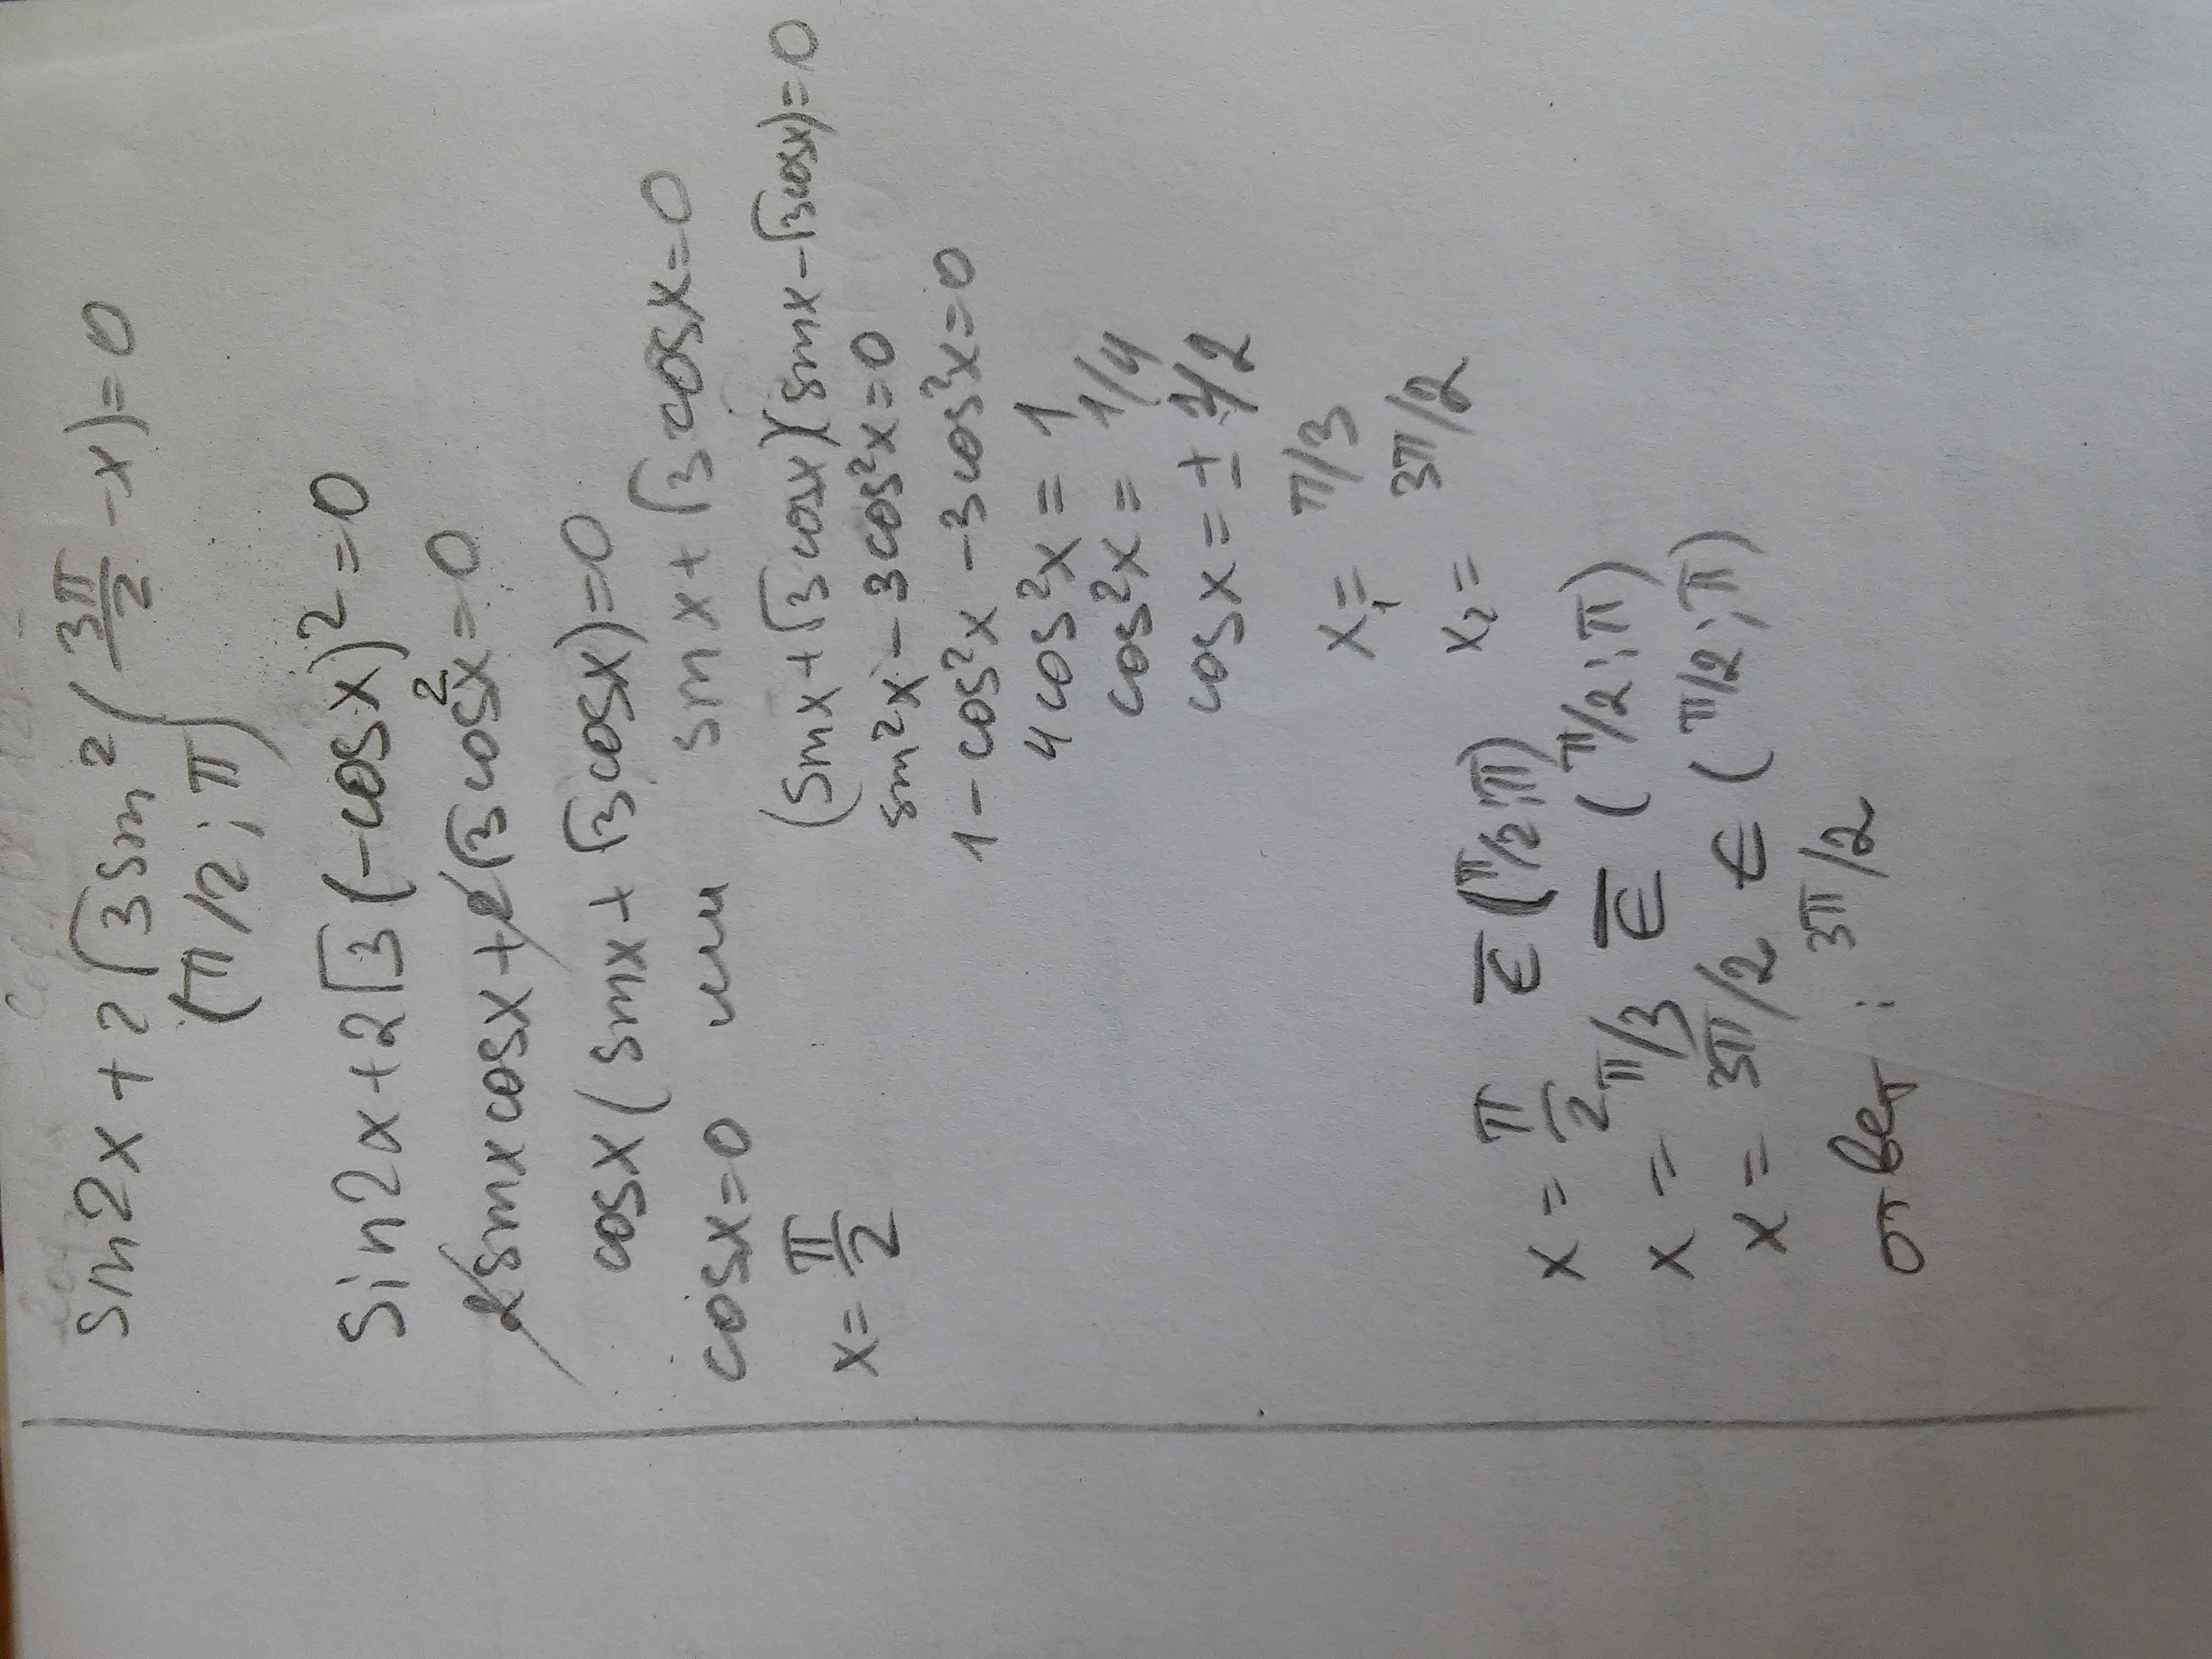 sin2x + 2√3 sin²(3π/2 - x) = 0
(π/2 ; π)
Sin2x + 2√3 (-cosx)² = 0
2sinxcosx + 2√3 cos²x = 0
cosx (sinx + √3 cosx) = 0
cosx = 0 или sinx + √3 cosx = 0
x = π/2
(sinx + √3 cosx)(sinx - √3 cosx) = 0
sin²x - 3cos²x = 0
1 - cos²x - 3cos²x = 0
4cos²x = 1
cos²x = 1/4
cosx = ± 1/2
x₁ = π/3
x₂ = 3π/2
x = π/2 ∈̅ (π/2; π)
x = π/3 ∈̅ (π/2 ; π)
x = 3π/2 ∈ (π/2 ; π)
ответ : 3π/2